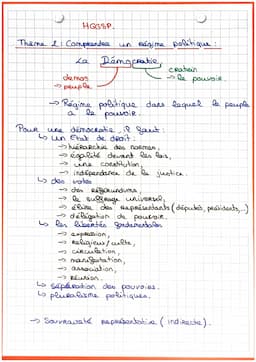 HGGSP.
Thème 1 : Comprendre un régime politique :
La Démocratie
demos
→ peuple
cratein
→ le pouvoir
→ Régime politique dans lequel le peuple
a le pouvoir.
Pour une démocratie il faut :
↳ Un Etat de droit :
→ hiérarchie des normes,
→ égalité devant les lois,
→ une constitution,
→ indépendance de la justice.
↳ des votes
→ des référendums,
→ le suffrage universel,
→ élire des représentants (députés, présidents,...)
→ délégation de pouvoir.
↳ les libertés fondamentales
→ expression,
→ religieux/culte,
→ circulation,
→ manifestation,
→ association,
→ réunion.
↳ séparation des pouvoirs.
↳ pluralisme politiques.
→ Souveraineté représentative (indirecte).